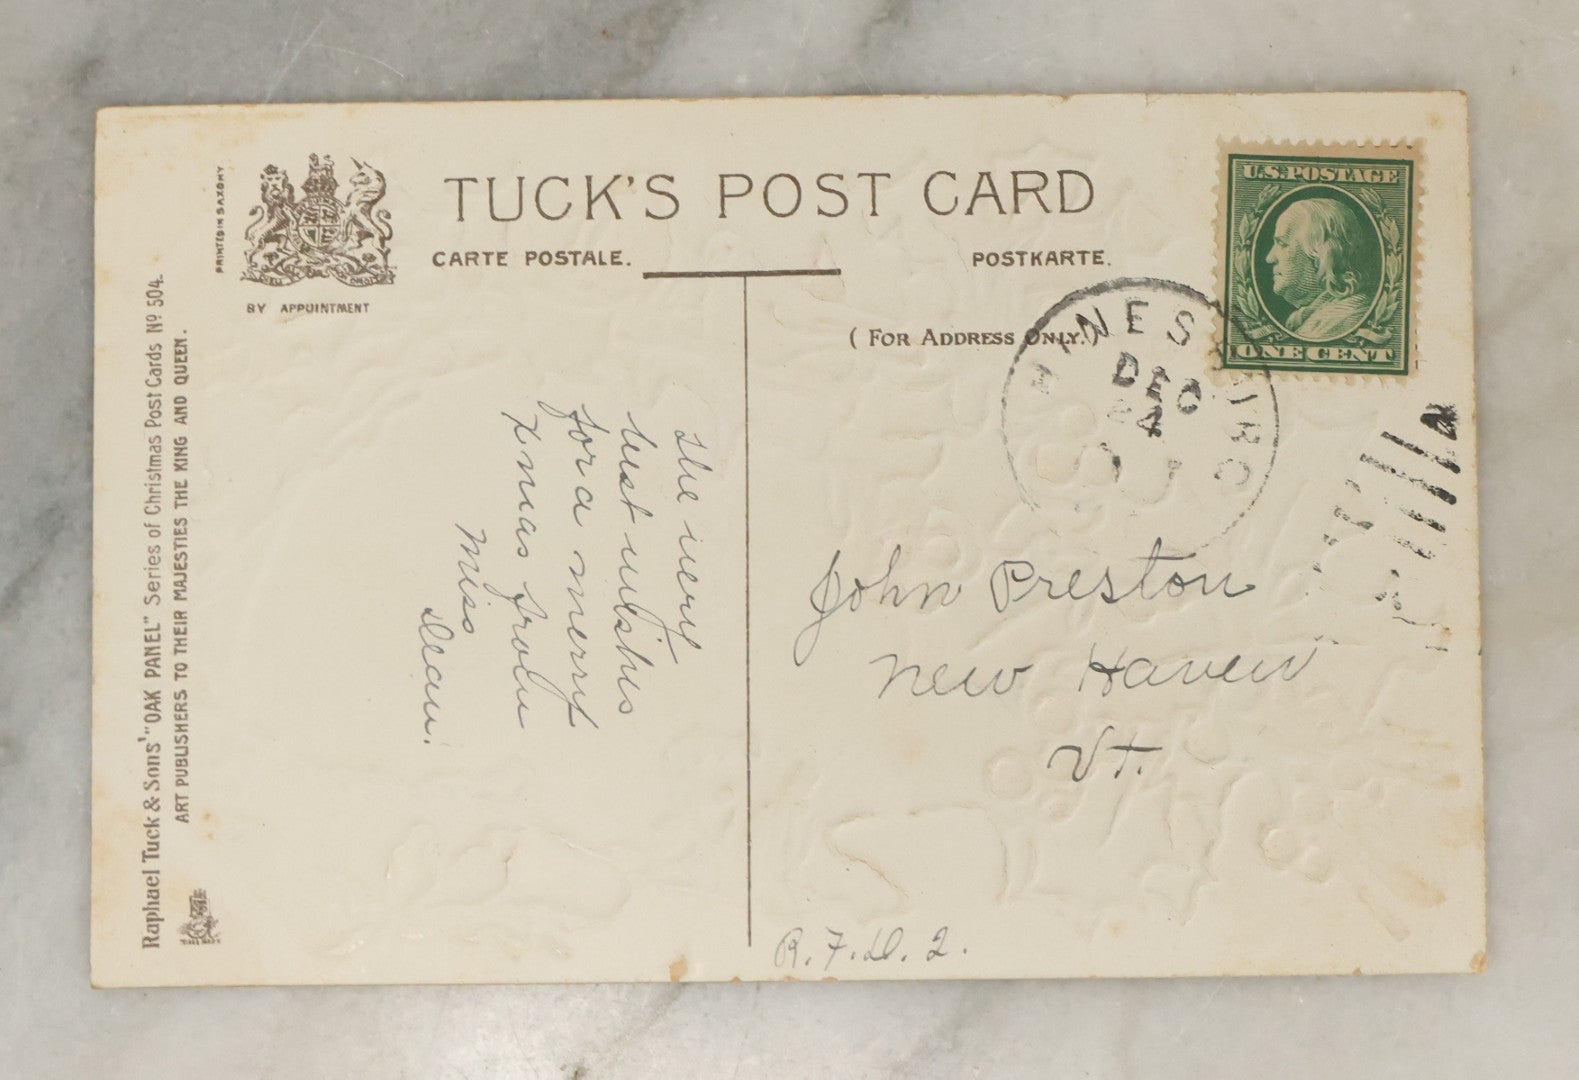 TUCK'S POST CARD
CARTE POSTALE.
POSTKARTE.
PRINTED IN SAXONY
BY APPOINTMENT
(FOR ADDRESS ONLY.)
U.S. POSTAGE
ONE CENT
HINESBURG
DEC
Raphael Tuck & Sons' "OAK PANEL" Series of Christmas Post Cards No 504.
ART PUBLISHERS TO THEIR MAJESTIES THE KING AND QUEEN.
TRADE MARK
The very
best wishes
for a merry
Xmas from
Miss
Dean.
John Preston
New Haven
Vt.
R.F.D. 2.